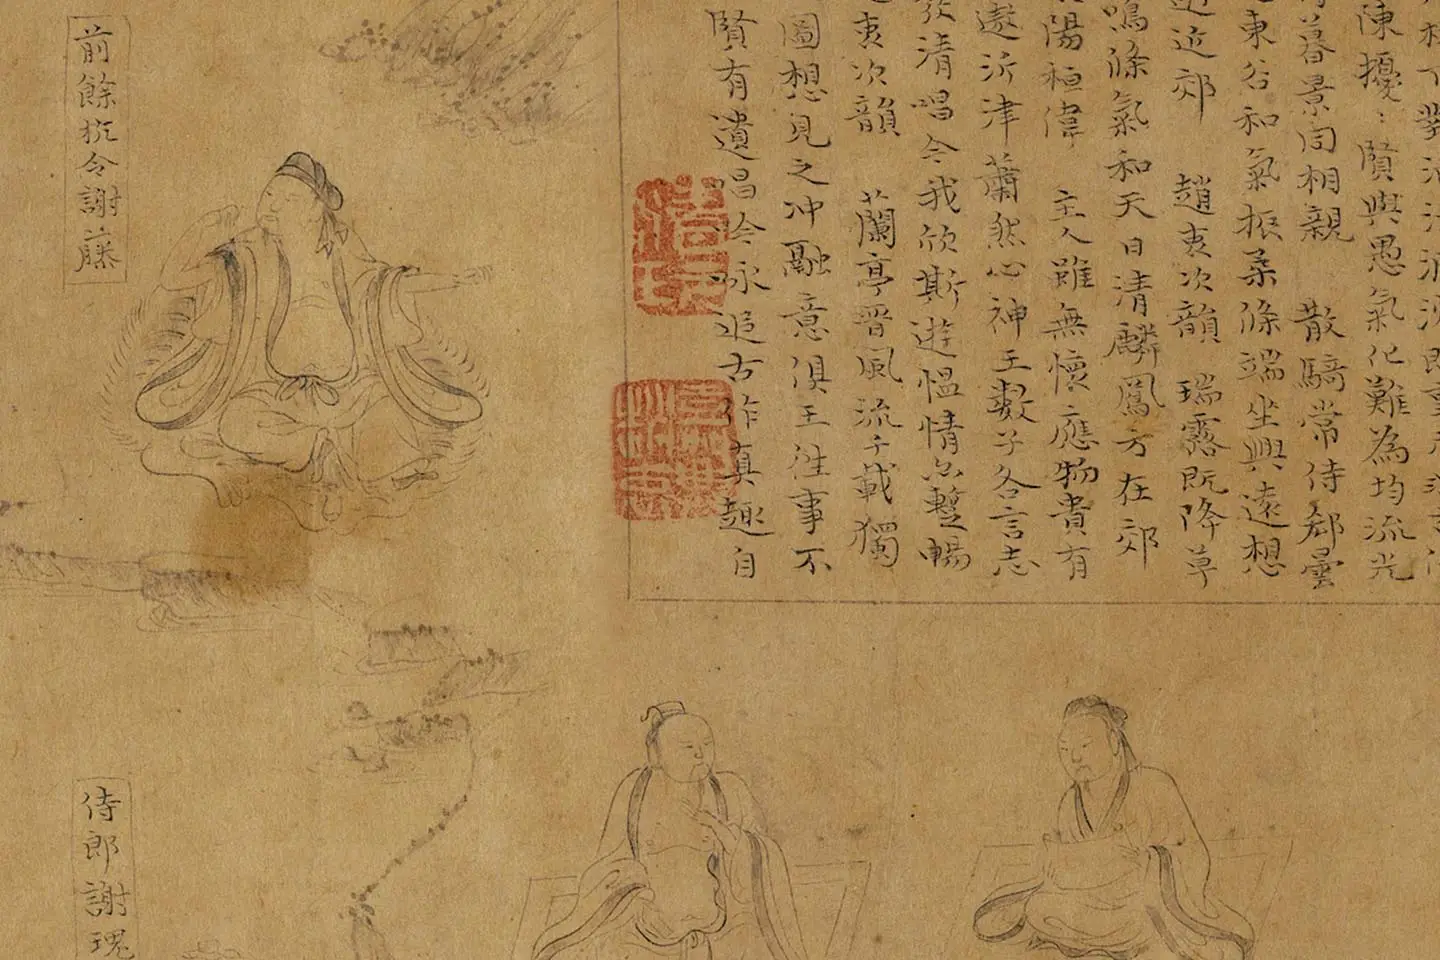 下對
陳擾〻賢與愚氣化難為均流光
暮景同相親　散騎常侍郗曇
東谷和氣振柔條端坐興遠想
近郊　趙夷次韻　瑞露既降草
鳴條氣和天日清麟鳳方在郊
陽桓偉　主人雖無懷應物貴有
遨沂津蕭然心神王數子各言志
發清唱今我欣斯遊慍情亦蹔暢
夷次韻　蘭亭晉風流千載獨
圖想見之沖融意俱王往事不
賢有遺唱吟咏追古作真趣自
前餘杭令謝藤
侍郎謝瑰